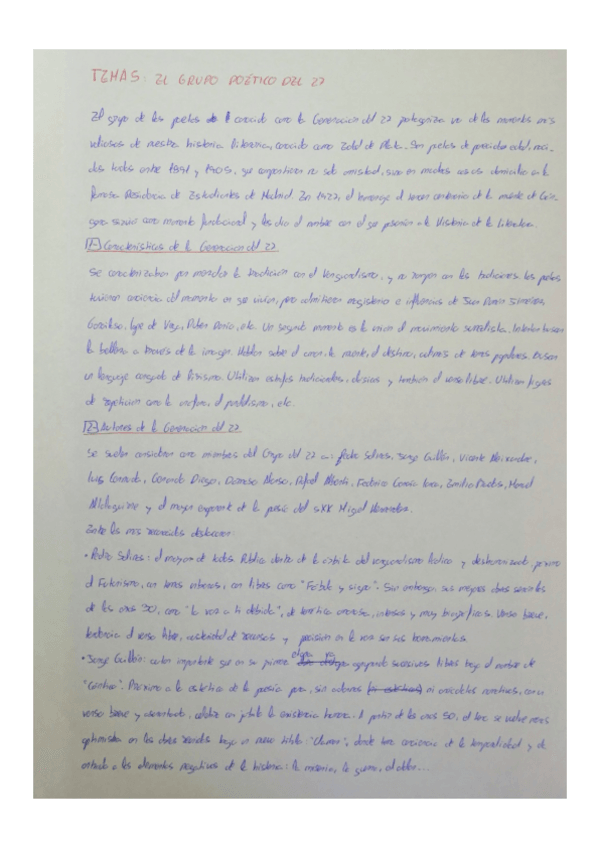 TEMA 5: EL GRUPO POÉTICO DEL 27
El grupo de los poetas conocido como la Generación del 27 protagoniza uno de los momentos más
valiosos de nuestra historia literaria, conocido como Edad de Plata. Son poetas de parecida edad, naci-
dos todos entre 1891 y 1905, que compartieron no solo amistad, sino en muchos casos domicilio en la
famosa Residencia de Estudiantes de Madrid. En 1927, el homenaje al tercer centenario de la muerte de Gón-
gora sirvió como momento fundacional y les dio el nombre con el que pasarían a la Historia de la Literatura.
1- Características de la Generación del 27
Se caracterizaban por mezclar la tradición con el vanguardismo, y no rompen con las tradiciones. Los poetas
tuvieron conciencia del momento en que vivían, pero admitieron magisterio e influencias de Juan Ramón Jiménez,
Garcilaso, Lope de Vega, Rubén Darío, etc. Un segundo momento es la unión al movimiento surrealista. Intentan buscar
la belleza a través de la imagen. Hablan sobre el amor, la muerte, el destino, además de temas populares. Buscan
un lenguaje cargado de lirismo. Utilizan estrofas tradicionales, clásicas y también el verso libre. Utilizan figuras
de repetición como la anáfora, el paralelismo, etc.
2- Autores de la Generación del 27
Se suelen considerar como miembros del Grupo del 27 a: Pedro Salinas, Jorge Guillén, Vicente Aleixandre,
Luis Cernuda, Gerardo Diego, Dámaso Alonso, Rafael Alberti, Federico García Lorca, Emilio Prados, Manuel
Altolaguirre y el mayor exponente de la poesía del sXX Miguel Hernández.
Entre los más destacan:
• Pedro Salinas: el mayor de todos. Publica dentro de la órbita del vanguardismo lúdico y deshumanizado, próximo
al Futurismo, con temas urbanos, con libros como "Fábula y signo". Sin embargo, sus mejores obras son las
de los años 30, como "La voz a ti debida", de temática amorosa, intensos y muy biográficos. Verso breve,
tendencia al verso libre, austeridad de recursos y precisión en la voz son sus herramientas.
• Jorge Guillén: autor importante que en su primera etapa va agrupando sucesivos libros bajo el nombre de
"Cántico". Próximo a la estética de la poesía pura, sin adornos ni anécdotas narrativas, con un
verso breve y asonantado, celebra con júbilo la existencia humana. A partir de los años 50, el tono se vuelve menos
optimista en las obras reunidas bajo un nuevo título: "Clamor", donde toma conciencia de la temporalidad y da
entrada a los elementos negativos de la historia: la miseria, la guerra, el dolor...